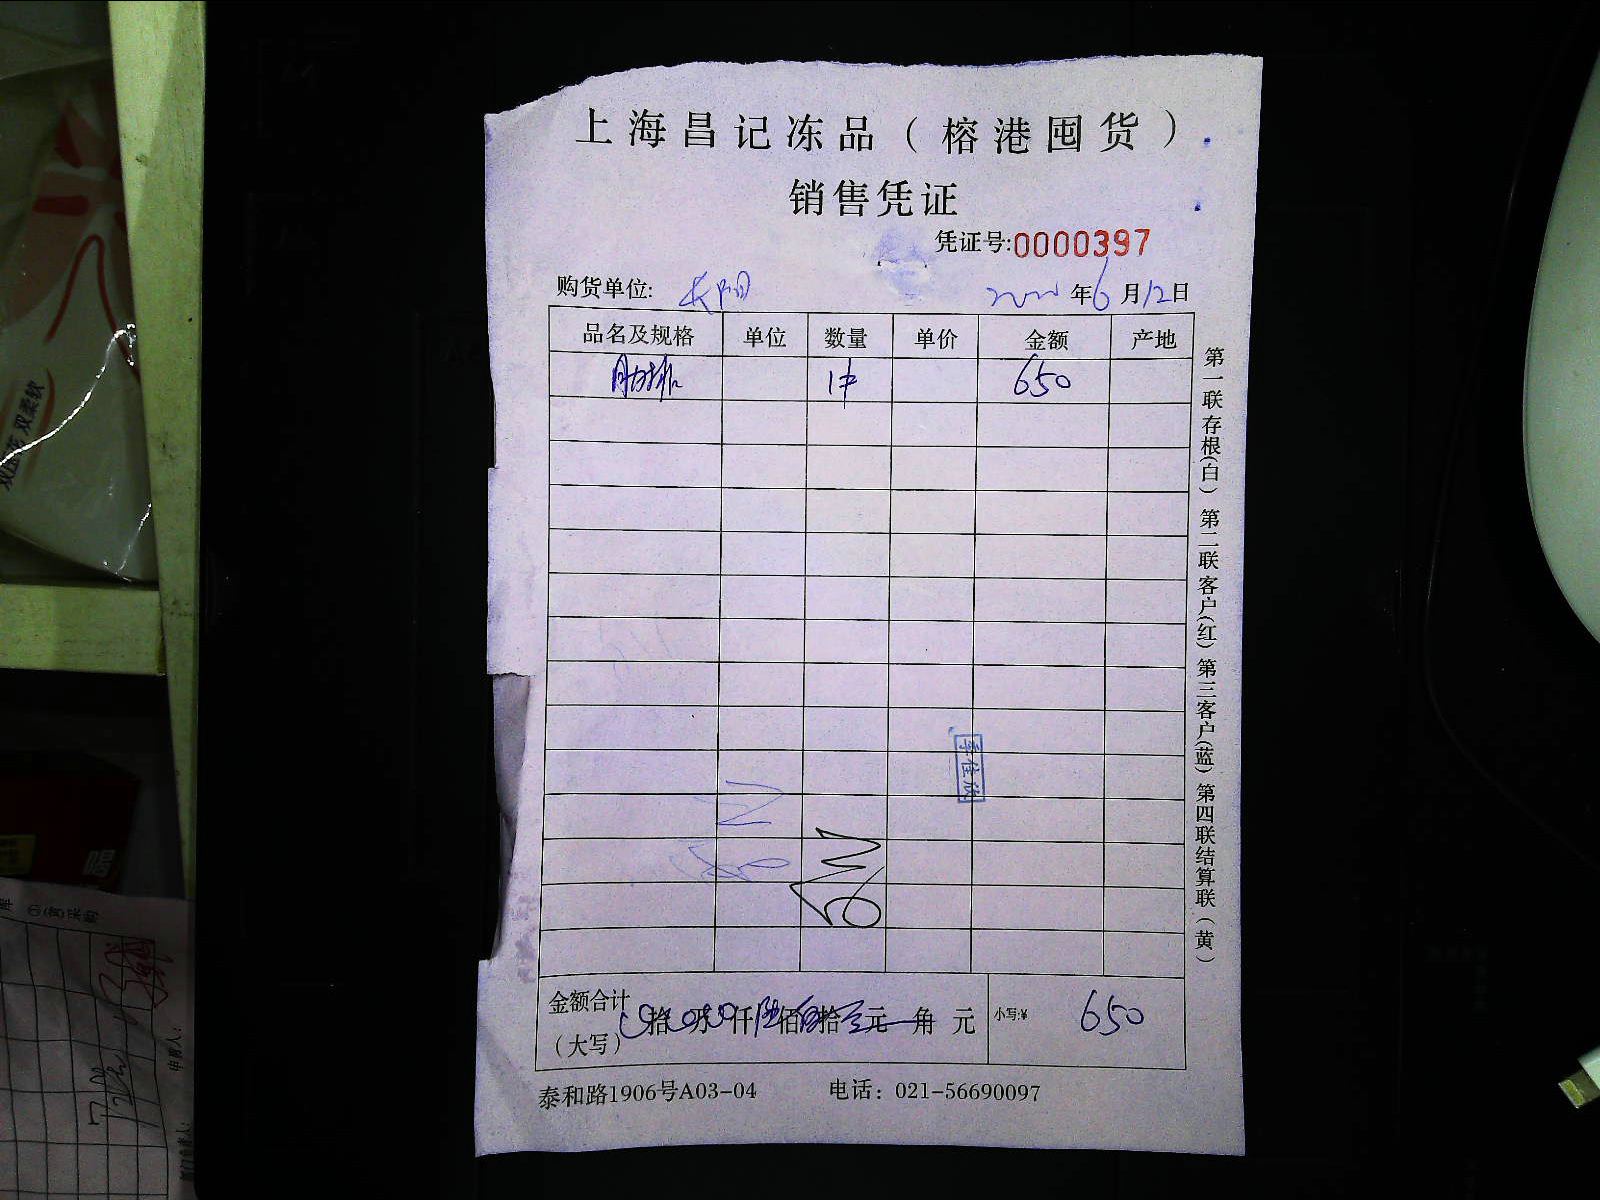 上海昌记冻品（榕港囤货）
销售凭证
凭证号:0000397
购货单位: 长阳 年6月12日
品名及规格 单位 数量 单价 金额 产地
肋排 1件 650
金额合计
（大写） 拾 万 仟 佰 拾 元 角 元 小写:¥ 650
泰和路1906号A03-04 电话：021-56690097
第一联存根(白) 第二联客户(红) 第三客户(蓝) 第四联结算联(黄)
李佳欣
双柔软